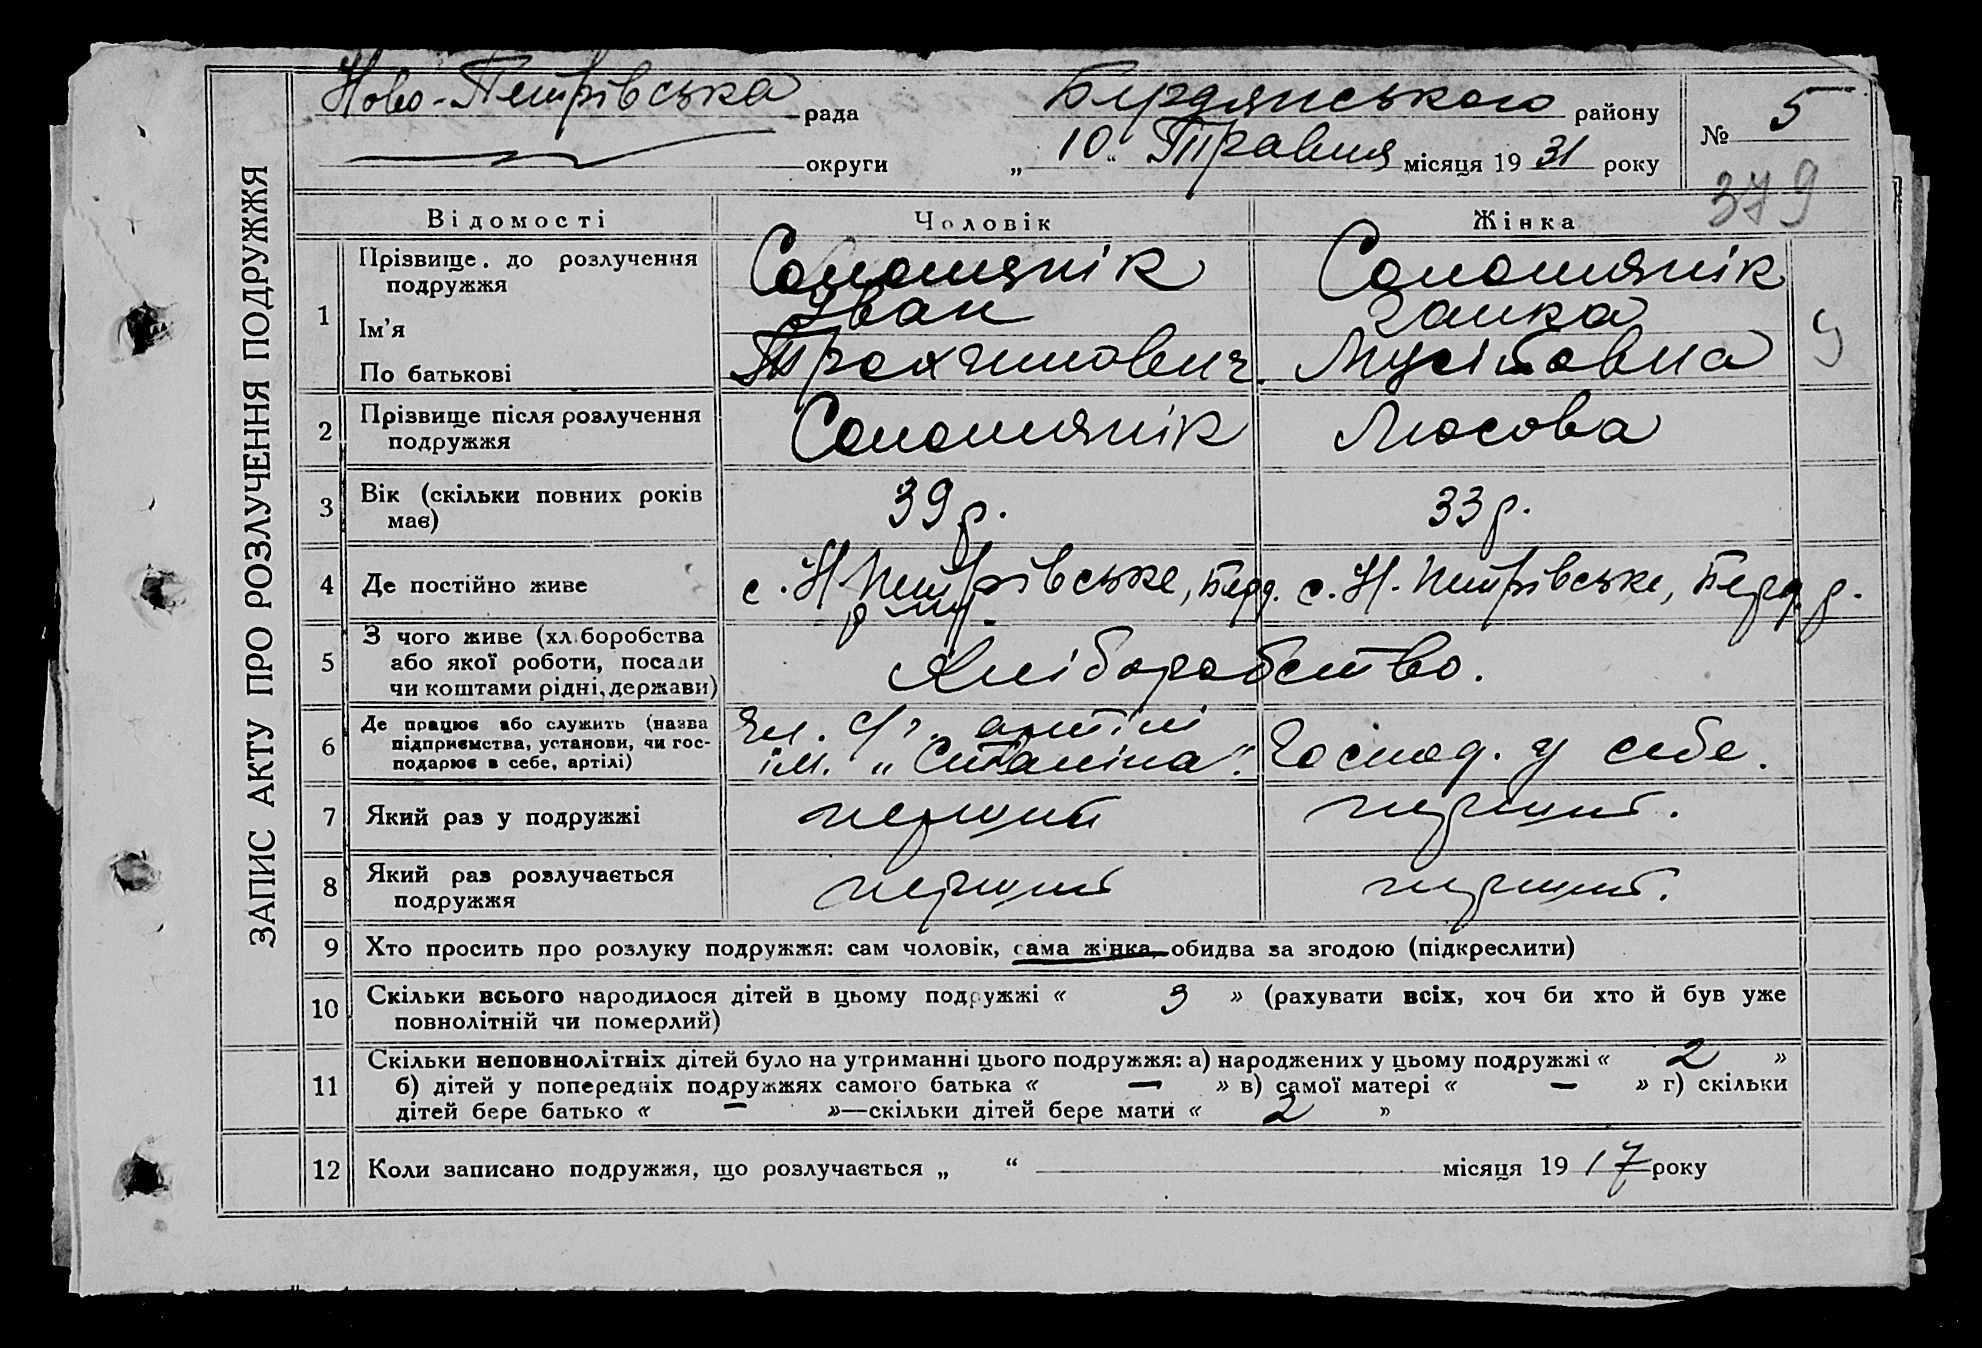 Ново-Петрівська рада Бердянського району № 5
округи „ 10 “ Травня місяця 19 31 року
379
ЗАПИС АКТУ ПРО РОЗЛУЧЕННЯ ПОДРУЖЖЯ
Відомості Чоловік Жінка
1 Прізвище до розлучення подружжя Соломянік Соломянік
Ім’я Іван Ганка
По батькові Трохимович Мусіївна
2 Прізвище після розлучення подружжя Соломянік Люсова
3 Вік (скільки повних років має) 39 р. 33 р.
4 Де постійно живе с. Н Петрівське, Берд. с. Н. Петрівське, Берд. р.
5 З чого живе (хліборобства або якої роботи, посади чи коштами рідні, держави) Хліборобство.
6 Де працює або служить (назва підприємства, установи, чи господарює в себе, артілі) Чл. с/г. артілі ім. „Сталіна“. Господ. у себе.
7 Який раз у подружжі перший перший.
8 Який раз розлучається подружжя перший перший.
9 Хто просить про розлуку подружжя: сам чоловік, сама жінка, обидва за згодою (підкреслити)
10 Скільки всього народилося дітей в цьому подружжі « 3 » (рахувати всіх, хоч би хто й був уже
повнолітній чи померлий)
11 Скільки неповнолітніх дітей було на утриманні цього подружжя: а) народжених у цьому подружжі « 2 »
б) дітей у попередніх подружжях самого батька « — » в) самої матері « — » г) скільки
дітей бере батько « — »—скільки дітей бере мати « 2 »
12 Коли записано подружжя, що розлучається „ “ місяця 19 17 року